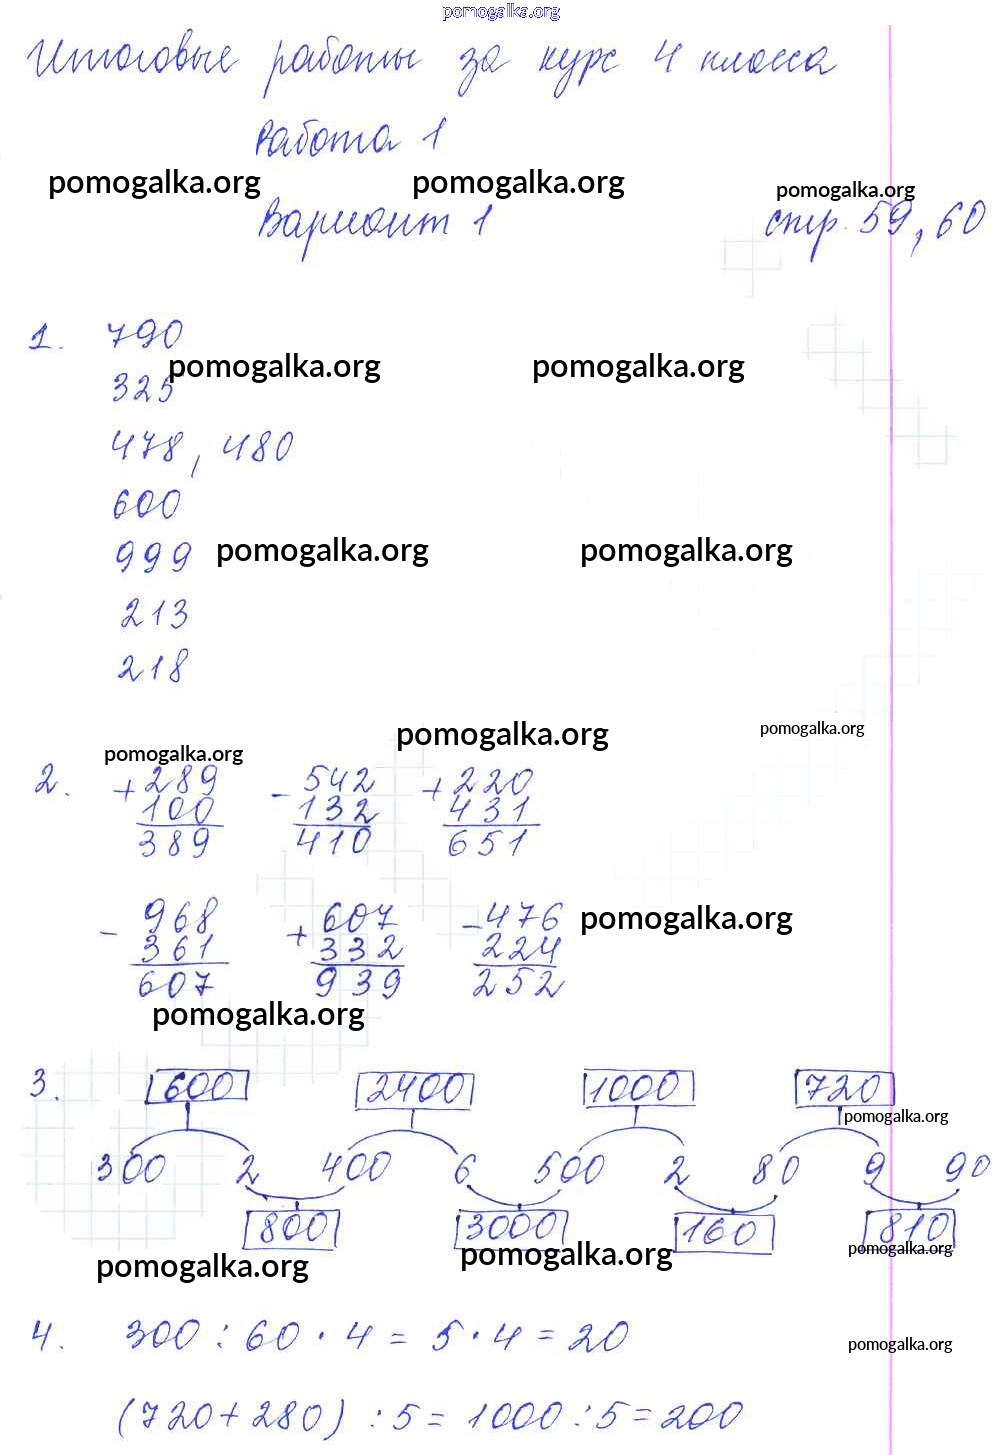 pomogalka.org
Итоговые работы за курс 4 класса
Работа 1
pomogalka.org pomogalka.org pomogalka.org
Вариант 1 стр. 59, 60
1. 790
pomogalka.org pomogalka.org
325
478, 480
600
999 pomogalka.org pomogalka.org
213
218
pomogalka.org pomogalka.org pomogalka.org
2. + 289 - 542 + 220
100 132 431
389 410 651
- 968 + 607 - 476 pomogalka.org
361 332 224
607 939 252
pomogalka.org
3. 600 2400 1000 720
pomogalka.org
300 2 400 6 500 2 80 9 90
800 3000 160 810
pomogalka.org pomogalka.org pomogalka.org
4. 300 : 60 · 4 = 5 · 4 = 20
pomogalka.org
(720 + 280) : 5 = 1000 : 5 = 200